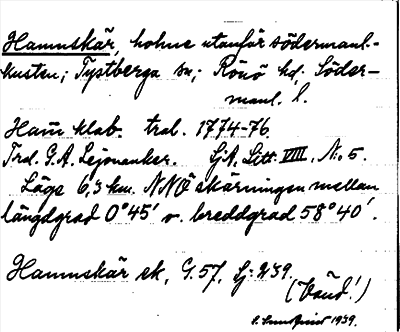 Hamnskär, holme utanför södermanl.-
kusten; Tystberga sn; Rönö hd; Söder-
manl. l.
Ham̄ klab. tral. 1774-76
Trol. G.A. Lejonanker. SjA, Litt. VIII. N:o 5.
Läge 6,3 km. NNÖ skärningen mellan
längdgrad 0°45' o. breddgrad 58°40'.
Hamnskär ek, G. 57, Sj: 239.
(Vänd!)
1939.